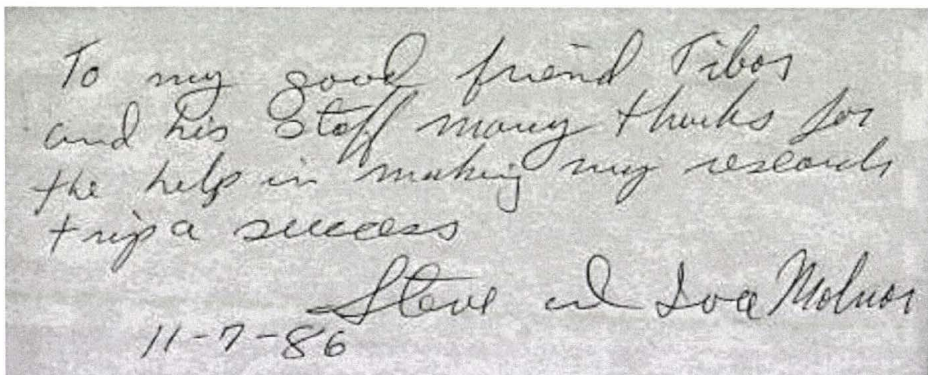 To my good friend Tibor
and his Staff many thanks for
the help in making my research
trip a success
Steve and Iva Molnor
11-7-86